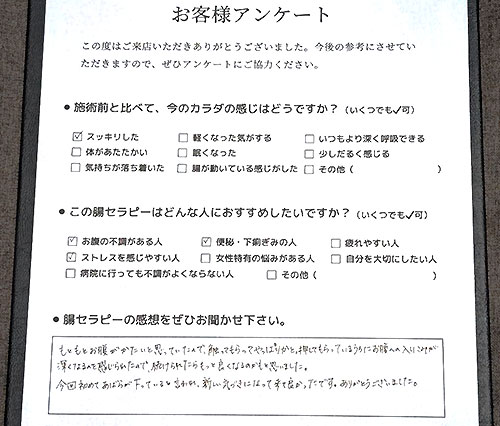 お客様アンケート
この度はご来店いただきありがとうございました。今後の参考にさせていただきますので、ぜひアンケートにご協力ください。
● 施術前と比べて、今のカラダの感じはどうですか？（いくつでも✓可）
☑ スッキリした □ 軽くなった気がする □ いつもより深く呼吸できる
□ 体があたたかい □ 眠くなった □ 少しだるく感じる
□ 気持ちが落ち着いた □ 腸が動いている感じがした □ その他（ ）
● この腸セラピーはどんな人におすすめしたいですか？（いくつでも✓可）
☑ お腹の不調がある人 ☑ 便秘・下痢ぎみの人 □ 疲れやすい人
☑ ストレスを感じやすい人 □ 女性特有の悩みがある人 □ 自分を大切にしたい人
□ 病院に行っても不調がよくならない人 □ その他（ ）
● 腸セラピーの感想をぜひお聞かせ下さい。
もともとお腹がかたいと思っていたんで、触ってもらってやっぱりかと。押してもらっているうちにお腹への入り
深くなるんを感じられたんで、続けられたらもっと良くなるのかもと思いました。
今回初めてあばらが下っていると言われ、新しい気づきになって来て良かったです。ありがとうございました。